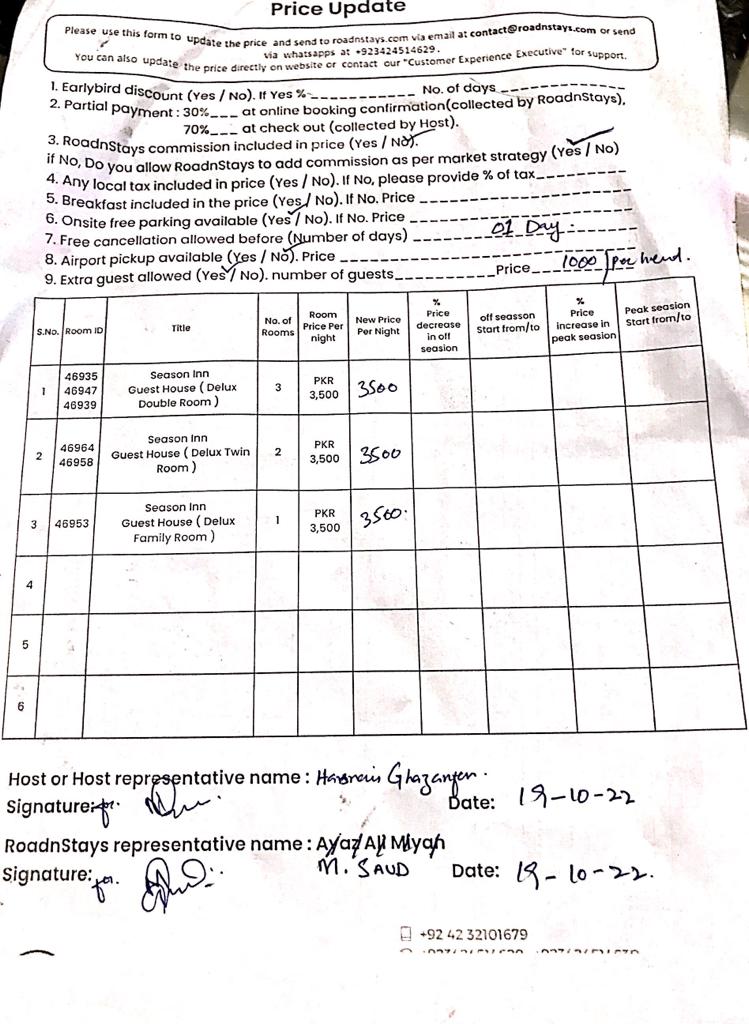 Price Update
Please use this form to update the price and send to roadnstays.com via email at contact@roadnstays.com or send
via whatsapps at +923424514629.
You can also update the price directly on website or contact our "Customer Experience Executive" for support.
1. Earlybird discount (Yes / No). If Yes %-____________ No. of days ______________
2. Partial payment : 30%___ at online booking confirmation(collected by RoadnStays),
70%___ at check out (collected by Host).
3. RoadnStays commission included in price (Yes / No).
if No, Do you allow RoadnStays to add commission as per market strategy (Yes / No)
4. Any local tax included in price (Yes / No). If No, please provide % of tax__________
5. Breakfast included in the price (Yes / No). If No. Price ______________________
6. Onsite free parking available (Yes / No). If No. Price ______________________
7. Free cancellation allowed before (Number of days) ________ 01 Day. ______
8. Airport pickup available (Yes / No). Price ______________________
9. Extra guest allowed (Yes / No). number of guests__________Price___ 1000 / per head.
S.No. Room ID Title No. of Rooms Room Price Per night New Price Per Night % Price decrease in off seasion off seasson Start from/to % Price increase in peak seasion Peak seasion Start from/to
1 46935 46947 46939 Season Inn Guest House ( Delux Double Room ) 3 PKR 3,500 3500
2 46964 46958 Season Inn Guest House ( Delux Twin Room ) 2 PKR 3,500 3500
3 46953 Season Inn Guest House ( Delux Family Room ) 1 PKR 3,500 3500
4
5
6
Host or Host representative name : Ghazanfer
Signature: for Date: 19-10-22
RoadnStays representative name : Ayaz Ali Miyah
M. SAUD
Signature: for. Date: 19-10-22.
+92 42 32101679